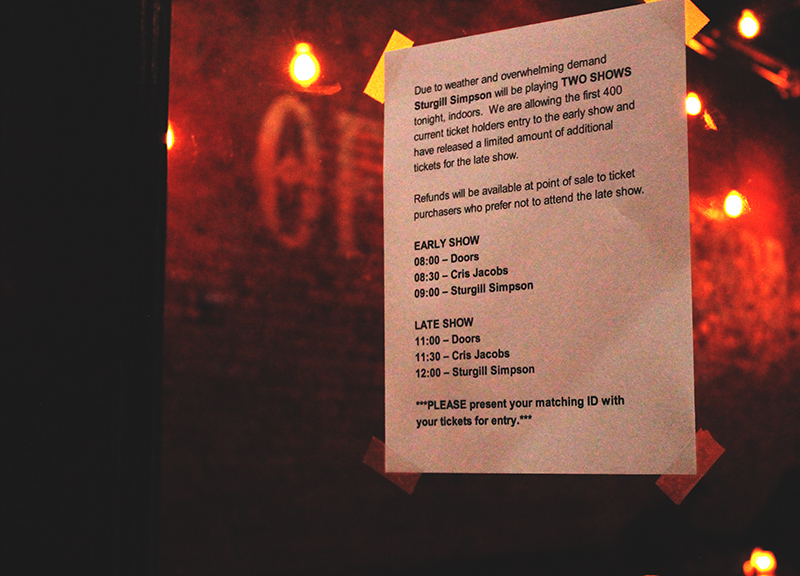 Due to weather and overwhelming demand
Sturgill Simpson will be playing TWO SHOWS
tonight, indoors. We are allowing the first 400
current ticket holders entry to the early show and
have released a limited amount of additional
tickets for the late show.
Refunds will be available at point of sale to ticket
purchasers who prefer not to attend the late show.
EARLY SHOW
08:00 – Doors
08:30 – Cris Jacobs
09:00 – Sturgill Simpson
LATE SHOW
11:00 – Doors
11:30 – Cris Jacobs
12:00 – Sturgill Simpson
***PLEASE present your matching ID with
your tickets for entry.***